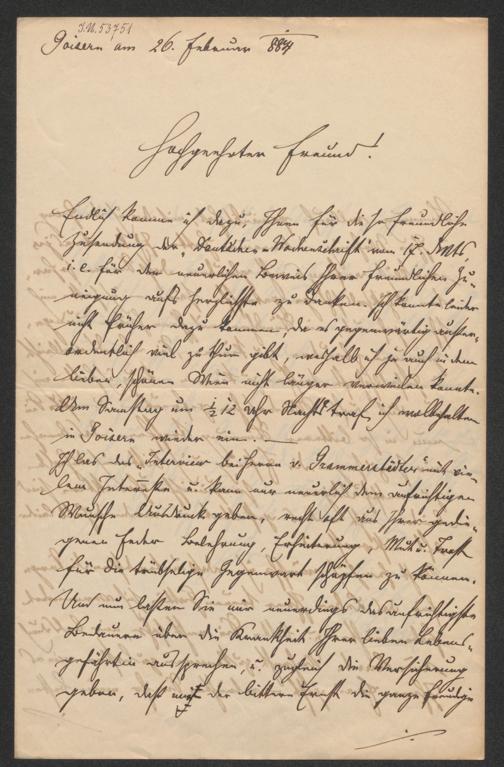 I.N. 53751
Goisern am 26. Februar 1884
Hochgeehrter Freund!
Endlich komme ich dazu, Ihnen für die so freundliche
Zusendung der Wochenschrift" vom 17. d. Mts,
i. e. für den neuerlichen Beweis Ihrer freundlichen Zu-
neigung aufs herzlichste zu danken. Ich konnte leider
nicht früher dazu kommen, da es gegenwärtig außer-
ordentlich viel zu thun gibt, weshalb ich ja auch in dem
lieben, schönen Wien nicht länger verweilen konnte.
Am Samstag um ½12 Uhr Nachts traf ich wolbehalten
in Goisern wieder ein. —
Ich las das „Interview bei Herrn v. Grammerstädter" mit vie-
lem Interesse u. kann nur neuerlich dem aufrichtigen
Wunsche Ausdruck geben, recht oft aus Ihrer gedie-
genen Feder Belehrung, Erheiterung, Mut u. Trost
für die trübselige Gegenwart schöpfen zu können.
Und nun lassen Sie mir neuerdings das aufrichtigste
Bedauern über die Krankheit Ihrer lieben Lebens-
gefährtin aussprechen, u. zugleich die Versicherung
geben, daß der bittere Ernst die ganze